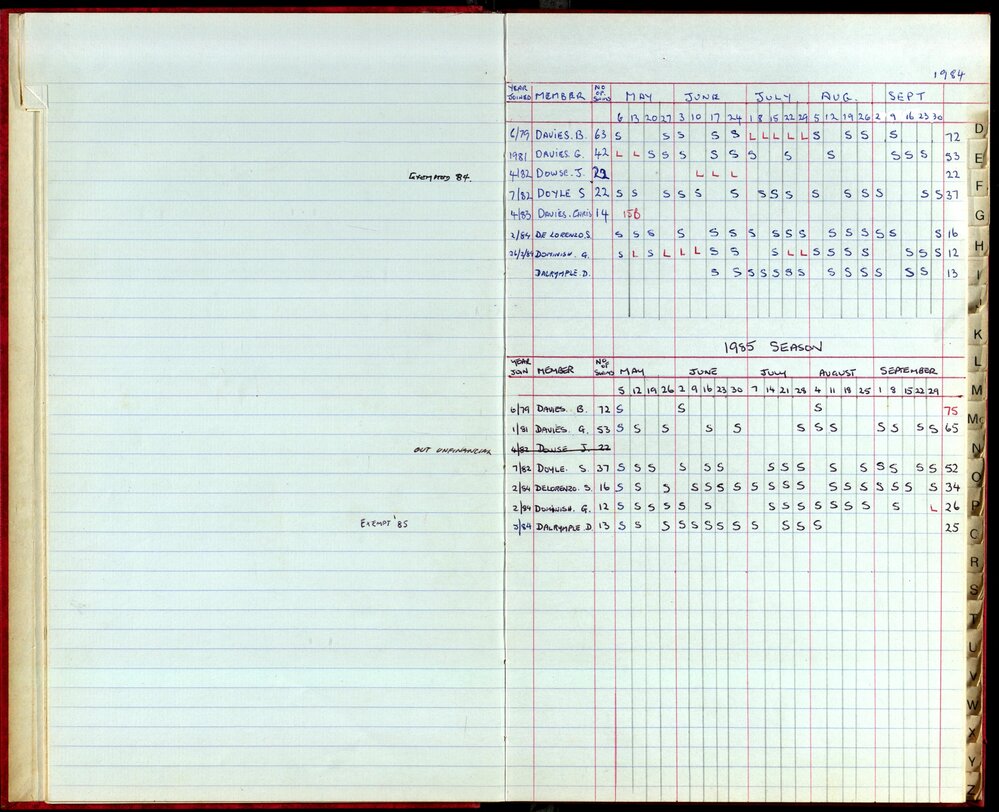 1984
YEAR JOINED MEMBER NO OF SWIMS MAY JUNE JULY AUG. SEPT
6 13 20 27 3 10 17 24 1 8 15 22 29 5 12 19 26 2 9 16 23 30
6/79 DAVIES. B. 63 S S S S S L L L L L S S S S 72
1981 DAVIES. G. 42 L L S S S S S S S S S S S 53
EXEMPTED 84. 4/82 DOWSE. J. 22 L L L 22
7/82 DOYLE S 22 S S S S S S S S S S S S S S S 37
4/83 DAVIES. CHRIS 14 15B
2/84 DE LORENZO S. S S S S S S S S S S S S S S S S S 16
26/2/84 DOMINISH. G. S L S L L L S S S L L S S S S S S S 12
DALRYMPLE D. S S S S S S S S S S S S S S 13
1985 SEASON
YEAR JOIN MEMBER NO. OF SWIMS MAY JUNE JULY AUGUST SEPTEMBER
5 12 19 26 2 9 16 23 30 7 14 21 28 4 11 18 25 1 8 15 22 29
6/79 DAVIES B. 72 S S S 75
1/81 DAVIES. G. 53 S S S S S S S S S S S S 65
OUT UNFINANCIAL 4/82 DOWSE J. 22
7/82 DOYLE. S. 37 S S S S S S S S S S S S S S S 52
2/84 DELORENZO. S. 16 S S S S S S S S S S S S S S S S S S 34
2/84 DOMINISH. G. 12 S S S S S S S S S S S S S S S L 26
EXEMPT '85 3/84 DALRYMPLE D. 13 S S S S S S S S S S S S S 25
D
E
F
G
H
I
J
K
L
M
Mc
N
O
P
Q
R
S
T
U
V
W
X
Y
Z